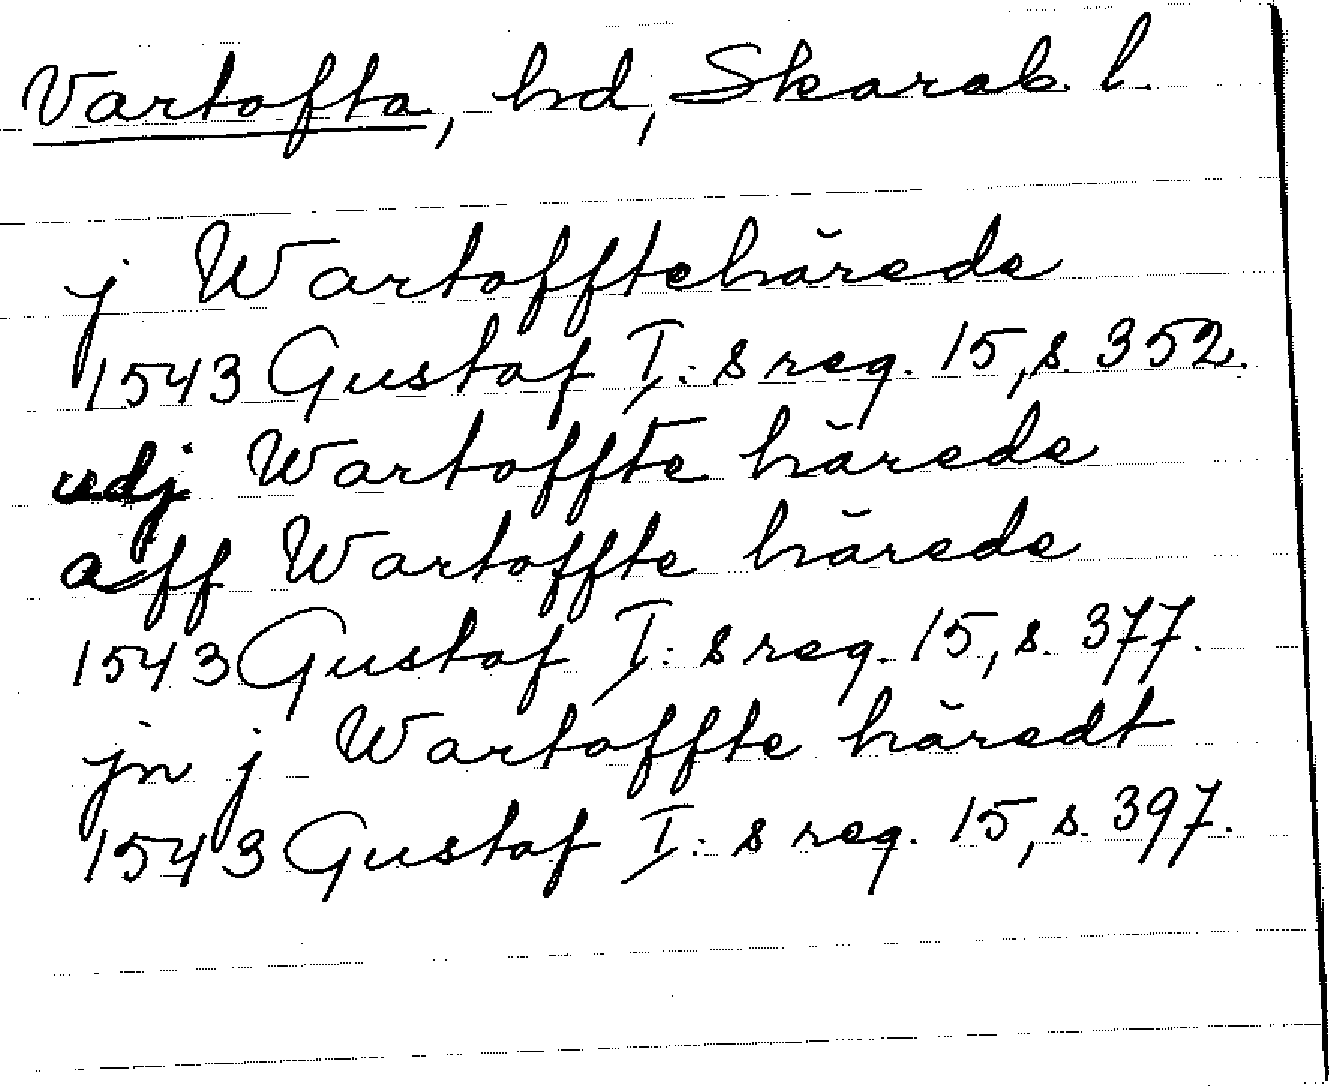 Vartofta, hd, Skarab. l.
j Wartoffteh̆ärede
1543 Gustaf I:s reg. 15, s. 352.
udj Wartoffte härede
aff Wartoffte härede
1543 Gustaf I:s reg. 15, s. 377.
jn j Wartoffte häredt
1543 Gustaf I:s reg. 15, s. 397.